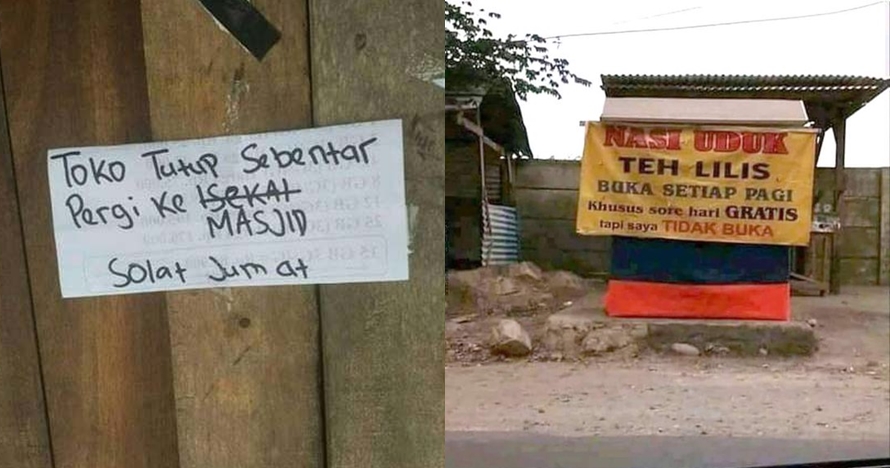 Toko Tutup Sebentar
Pergi Ke ISEKAI
MASJID
Solat Jum at
NASI UDUK
TEH LILIS
BUKA SETIAP PAGI
Khusus sore hari GRATIS
tapi saya TIDAK BUKA